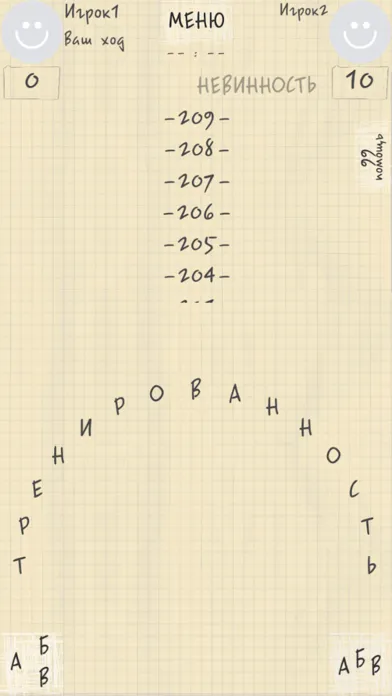 Игрок1
МЕНЮ
Игрок2
Ваш ход
-- : --
0
НЕВИННОСТЬ
10
-209-
-208-
помощь
66
-207-
-206-
-205-
-204-
ТРЕНИРОВАННОСТЬ
А Б В
А Б В